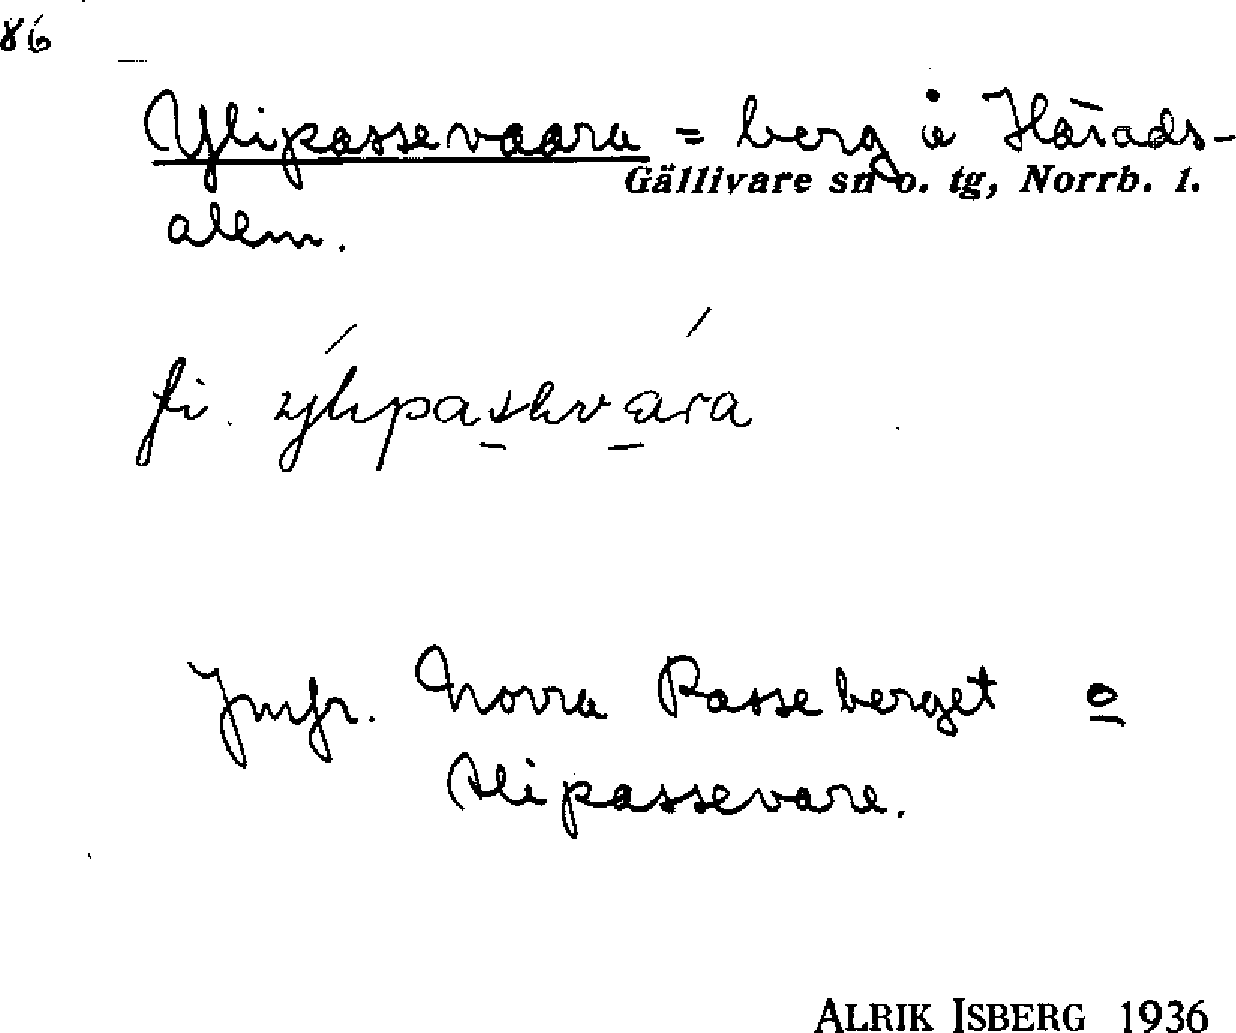 86
Ylipassevaara = berg å Härads-
Gällivare sn o. tg, Norrb. l.
allm.
fi.
Jmfr. Norra Passeberget o
Alipassevare.
ALRIK ISBERG 1936